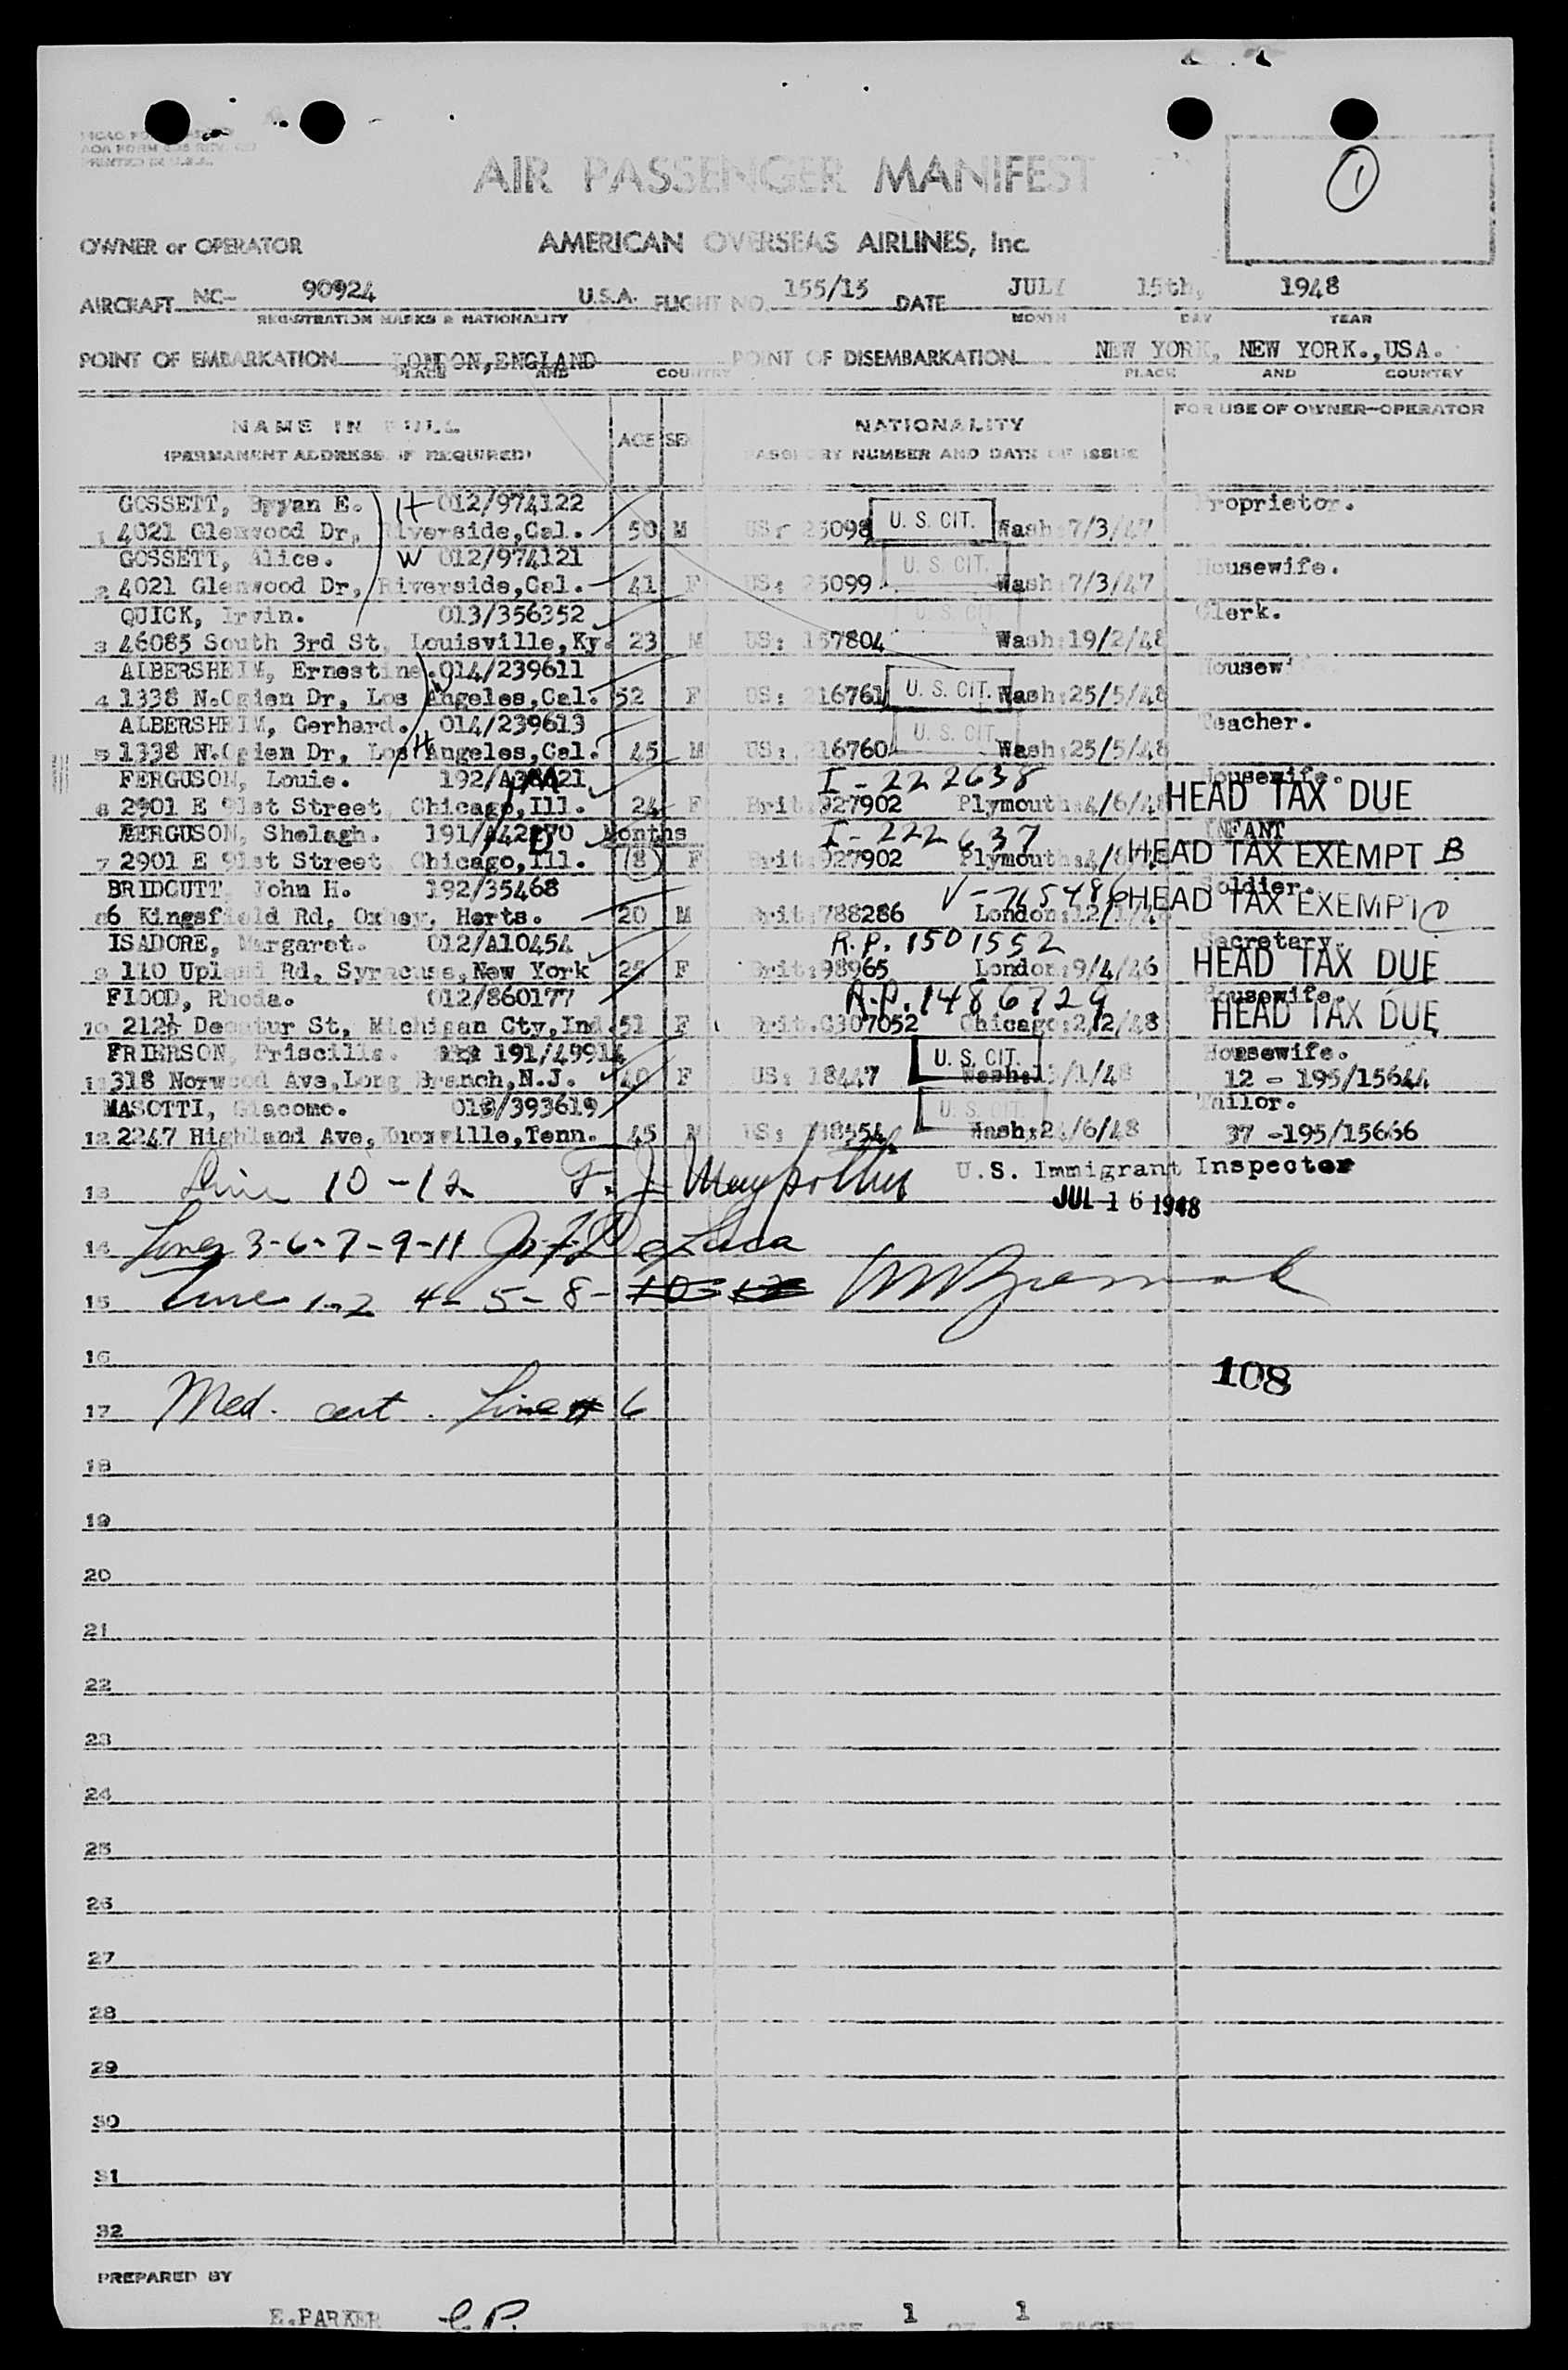 AIR PASSENGER MANIFEST
1
OWNER or OPERATOR AMERICAN OVERSEAS AIRLINES, Inc.
AIRCRAFT NC- 90924 U.S.A. FLIGHT NO. 155/15 DATE JULY 15th, 1948
REGISTRATION MARKS & NATIONALITY MONTH DAY YEAR
POINT OF EMBARKATION LONDON,ENGLAND POINT OF DISEMBARKATION NEW YORK, NEW YORK.,USA.
PLACE AND COUNTRY PLACE AND COUNTRY
NAME IN FULL AGE SEX NATIONALITY FOR USE OF OWNER-OPERATOR
(PERMANENT ADDRESS IF REQUIRED) PASSPORT NUMBER AND DATE OF ISSUE
GOSSETT, Bryan E. H 012/974122 U. S. CIT. Proprietor.
1 4021 Glenwood Dr, Riverside,Cal. 50 M US: 25098 Wash:7/3/47
GOSSETT, Alice. W 012/974121 U. S. CIT. Housewife.
2 4021 Glenwood Dr, Riverside,Cal. 41 F US: 25099 Wash:7/3/47
QUICK, Irvin. 013/356352 U. S. CIT. Clerk.
3 46085 South 3rd St, Louisville,Ky. 23 M US: 157804 Wash:19/2/48
ALBERSHEIM, Ernestine. 014/239611 U. S. CIT. Housew
4 1338 N.Ogden Dr, Los Angeles,Cal. 52 F US: 216761 Wash:25/5/48
ALBERSHEIM, Gerhard. 014/239613 U. S. CIT. Teacher.
5 1338 N.Ogden Dr, Los Angeles,Cal. H 45 M US: 216760 Wash:25/5/48
FERGUSON, Louie. 192/ I-222638 Housewife.
6 2901 E 91st Street, Chicago,Ill. 24 F Brit:927902 Plymouth:4/6/48 HEAD TAX DUE
FERGUSON, Shelagh. 191/ Months I-222637 INFANT
7 2901 E 91st Street, Chicago,Ill. (8) F Brit:927902 Plymouth:4/6/48 HEAD TAX EXEMPT B
BRIDCUTT, John H. 192/35468 V-715486 Soldier.
8 6 Kingsfield Rd, Oxhey, Herts. 20 M Brit:788286 London:12/1/48 HEAD TAX EXEMPT C
ISADORE, Margaret. 012/A10454 R.P. 1501552 Secretary.
9 110 Upland Rd, Syracuse,New York 25 F Brit:98965 London:9/4/46 HEAD TAX DUE
FLOOD, Rhoda. 012/860177 R.P. 1486729 Housewife.
10 212½ Decatur St, Michigan Cty,Ind. 51 F Brit.C307052 Chicago:2/2/48 HEAD TAX DUE
FRIERSON, Priscilla. 191/49914 U. S. CIT. Housewife.
11 318 Norwood Ave,Long Branch,N.J. 40 F US: 18447 Wash: /1/48 12 - 195/15644
MASOTTI, Giacomo. 013/393619 U. S. CIT. Tailor.
12 2247 Highland Ave, Knoxville,Tenn. 45 M US: Wash:2 /6/48 37 -195/15666
13 Line 10-12 F. J. U.S. Immigrant Inspector
JUL 16 1948
14 Lines 3-6-7-9-11 DeLuca
15 Line 1-2 4- 5-8-
16
108
17 Med. cert. Line # 6
18
19
20
21
22
23
24
25
26
27
28
29
30
31
32
PREPARED BY
E.PARKER E.P. PAGE 1 OF 1 PAGES